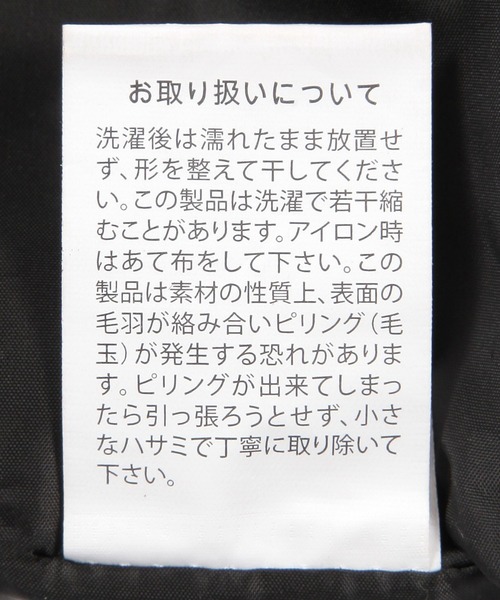 お取り扱いについて
洗濯後は濡れたまま放置せ
ず、形を整えて干してくださ
い。この製品は洗濯で若干縮
むことがあります。アイロン時
はあて布をして下さい。この
製品は素材の性質上、表面の
毛羽が絡み合いピリング（毛
玉）が発生する恐れがありま
す。ピリングが出来てしまっ
たら引っ張ろうとせず、小さ
なハサミで丁寧に取り除いて
下さい。